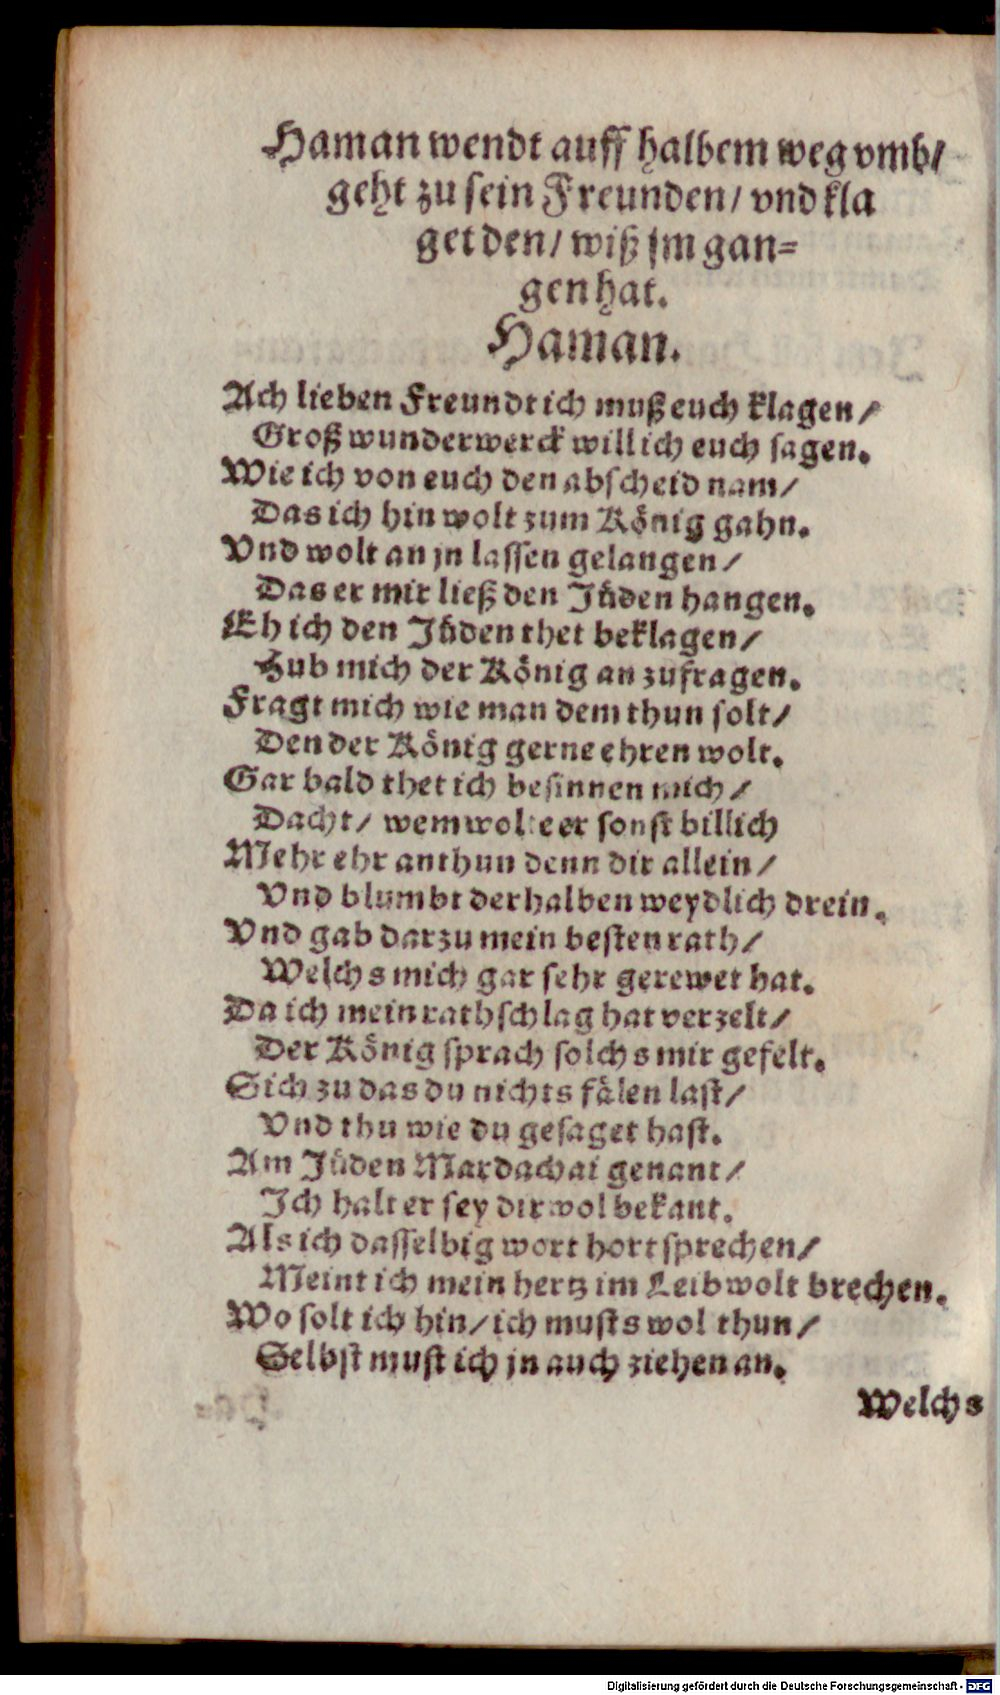 Haman wendt auff halbem weg vmb/
geht zu sein Freunden/ vnd kla
get den/ wiß jm gan=
gen hat.
Haman.
Ach lieben Freundt ich muß euch klagen/
Groß wunderwerck will ich euch sagen.
Wie ich von euch den abscheid nam/
Das ich hin wolt zum König gahn.
Vnd wolt an jn lassen gelangen/
Das er mir ließ den Jüden hangen.
Eh ich den Jüden thet beklagen/
Hub mich der König an zufragen.
Fragt mich wie man dem thun solt/
Den der König gerne ehren wolt.
Gar bald thet ich besinnen mich/
Dacht/ wem wolte er sonst billich
Mehr ehr anthun denn dir allein/
Vnd blumbt derhalben weydlich drein.
Vnd gab darzu mein besten rath/
Welchs mich gar sehr gerewet hat.
Da ich mein rathschlag hat verzelt/
Der König sprach solchs mir gefelt.
Sich zu das du nichts fälen last/
Vnd thu wie du gesaget hast.
Am Jüden Mardachai genant/
Ich halt er sey dir wol bekant.
Als ich dasselbig wort hort sprechen/
Meint ich mein hertz im Leib wolt brechen.
Wo solt ich hin/ ich musts wol thun/
Selbst must ich jn auch ziehen an.
Welchs
Digitalisierung gefördert durch die Deutsche Forschungsgemeinschaft - DFG